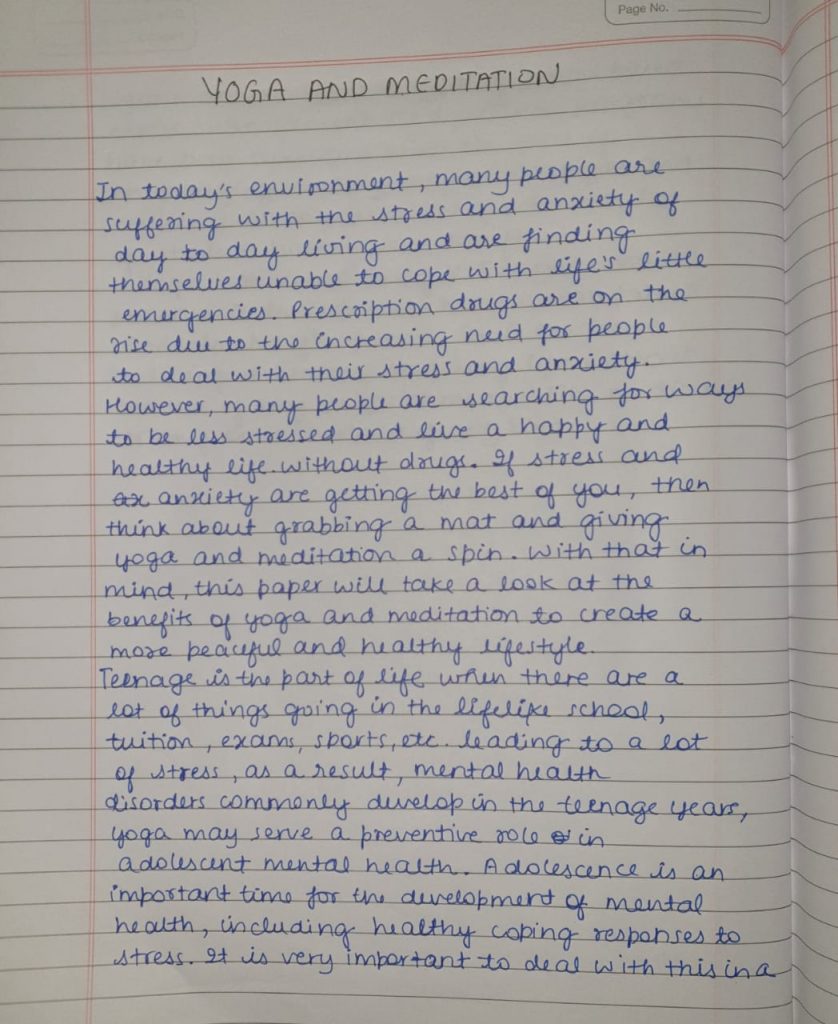 Page No.
YOGA AND MEDITATION
In today's environment, many people are
suffering with the stress and anxiety of
day to day living and are finding
themselves unable to cope with life's little
emergencies. Prescription drugs are on the
rise due to the increasing need for people
to deal with their stress and anxiety.
However, many people are searching for ways
to be less stressed and live a happy and
healthy life without drugs. If stress and
ax anxiety are getting the best of you, then
think about grabbing a mat and giving
yoga and meditation a spin. With that in
mind, this paper will take a look at the
benefits of yoga and meditation to create a
more peaceful and healthy lifestyle.
Teenage is the part of life when there are a
lot of things going in the lifelike school,
tuition, exams, sports, etc. leading to a lot
of stress, as a result, mental health
disorders commonly develop in the teenage years,
yoga may serve a preventive role in
adolescent mental health. Adolescence is an
important time for the development of mental
health, including healthy coping responses to
stress. It is very important to deal with this in a